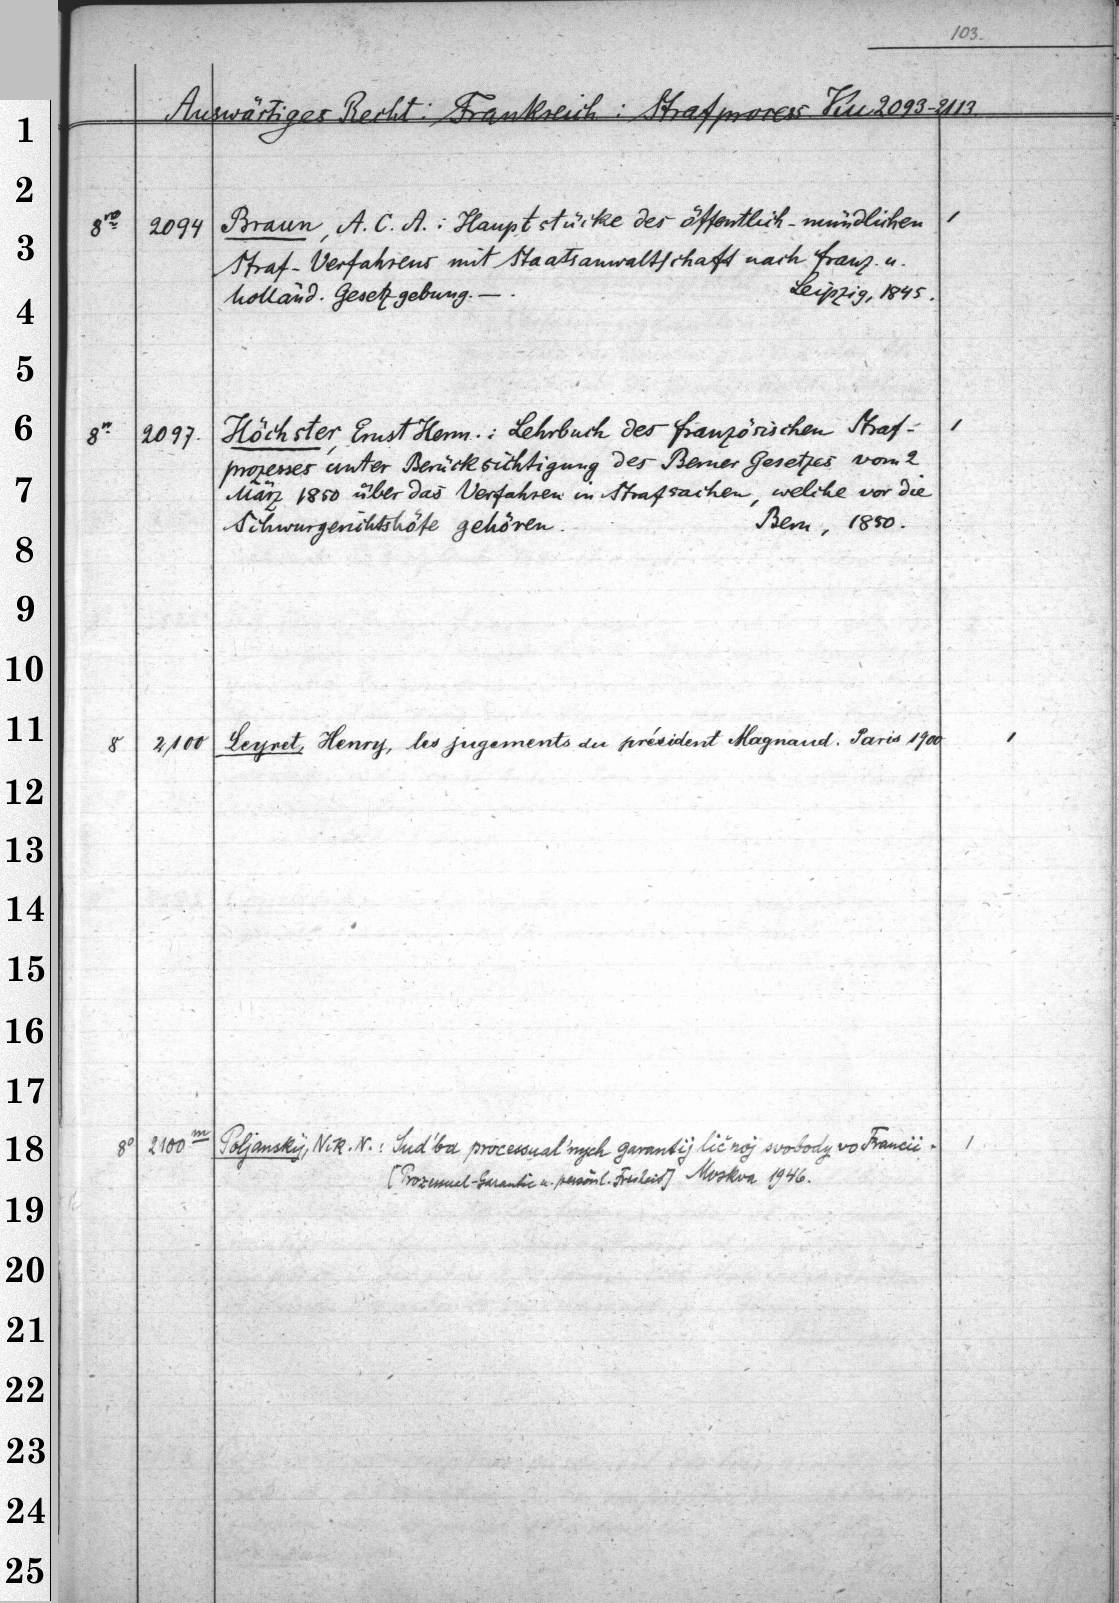 103.
Auswärtiges Recht: Frankreich: Strafprocess Ku 2093-2113.
1
2
8vo 2094 Braun, A. C. A.: Hauptstücke des öffentlich-mündlichen 1
3
Straf-Verfahrens mit Staatsanwaltschaft nach franz. u.
holländ. Gesetzgebung. — . Leipzig, 1845.
4
5
6 8o. 2097. Höchster, Ernst Herm.: Lehrbuch des französischen Straf- 1
prozesses unter Berücksichtigung des Berner Gesetzes vom 2
7 März 1850 über das Verfahren in Strafsachen, welche vor die
Schwurgerichtshöfe gehören. Bern, 1850.
8
9
10
11 8 2,100 Leyret, Henry, les jugements du président Magnaud. Paris 1900 1
12
13
14
15
16
17
18 8o 2100 m Poljanskij, Nik. N.: Sud'ba processual'nych garantij ličnoj svobody vo Francii. 1
[Prozessuel-Garantie u. persönl. Freiheit] Moskva 1946.
19
20
21
22
23
24
25